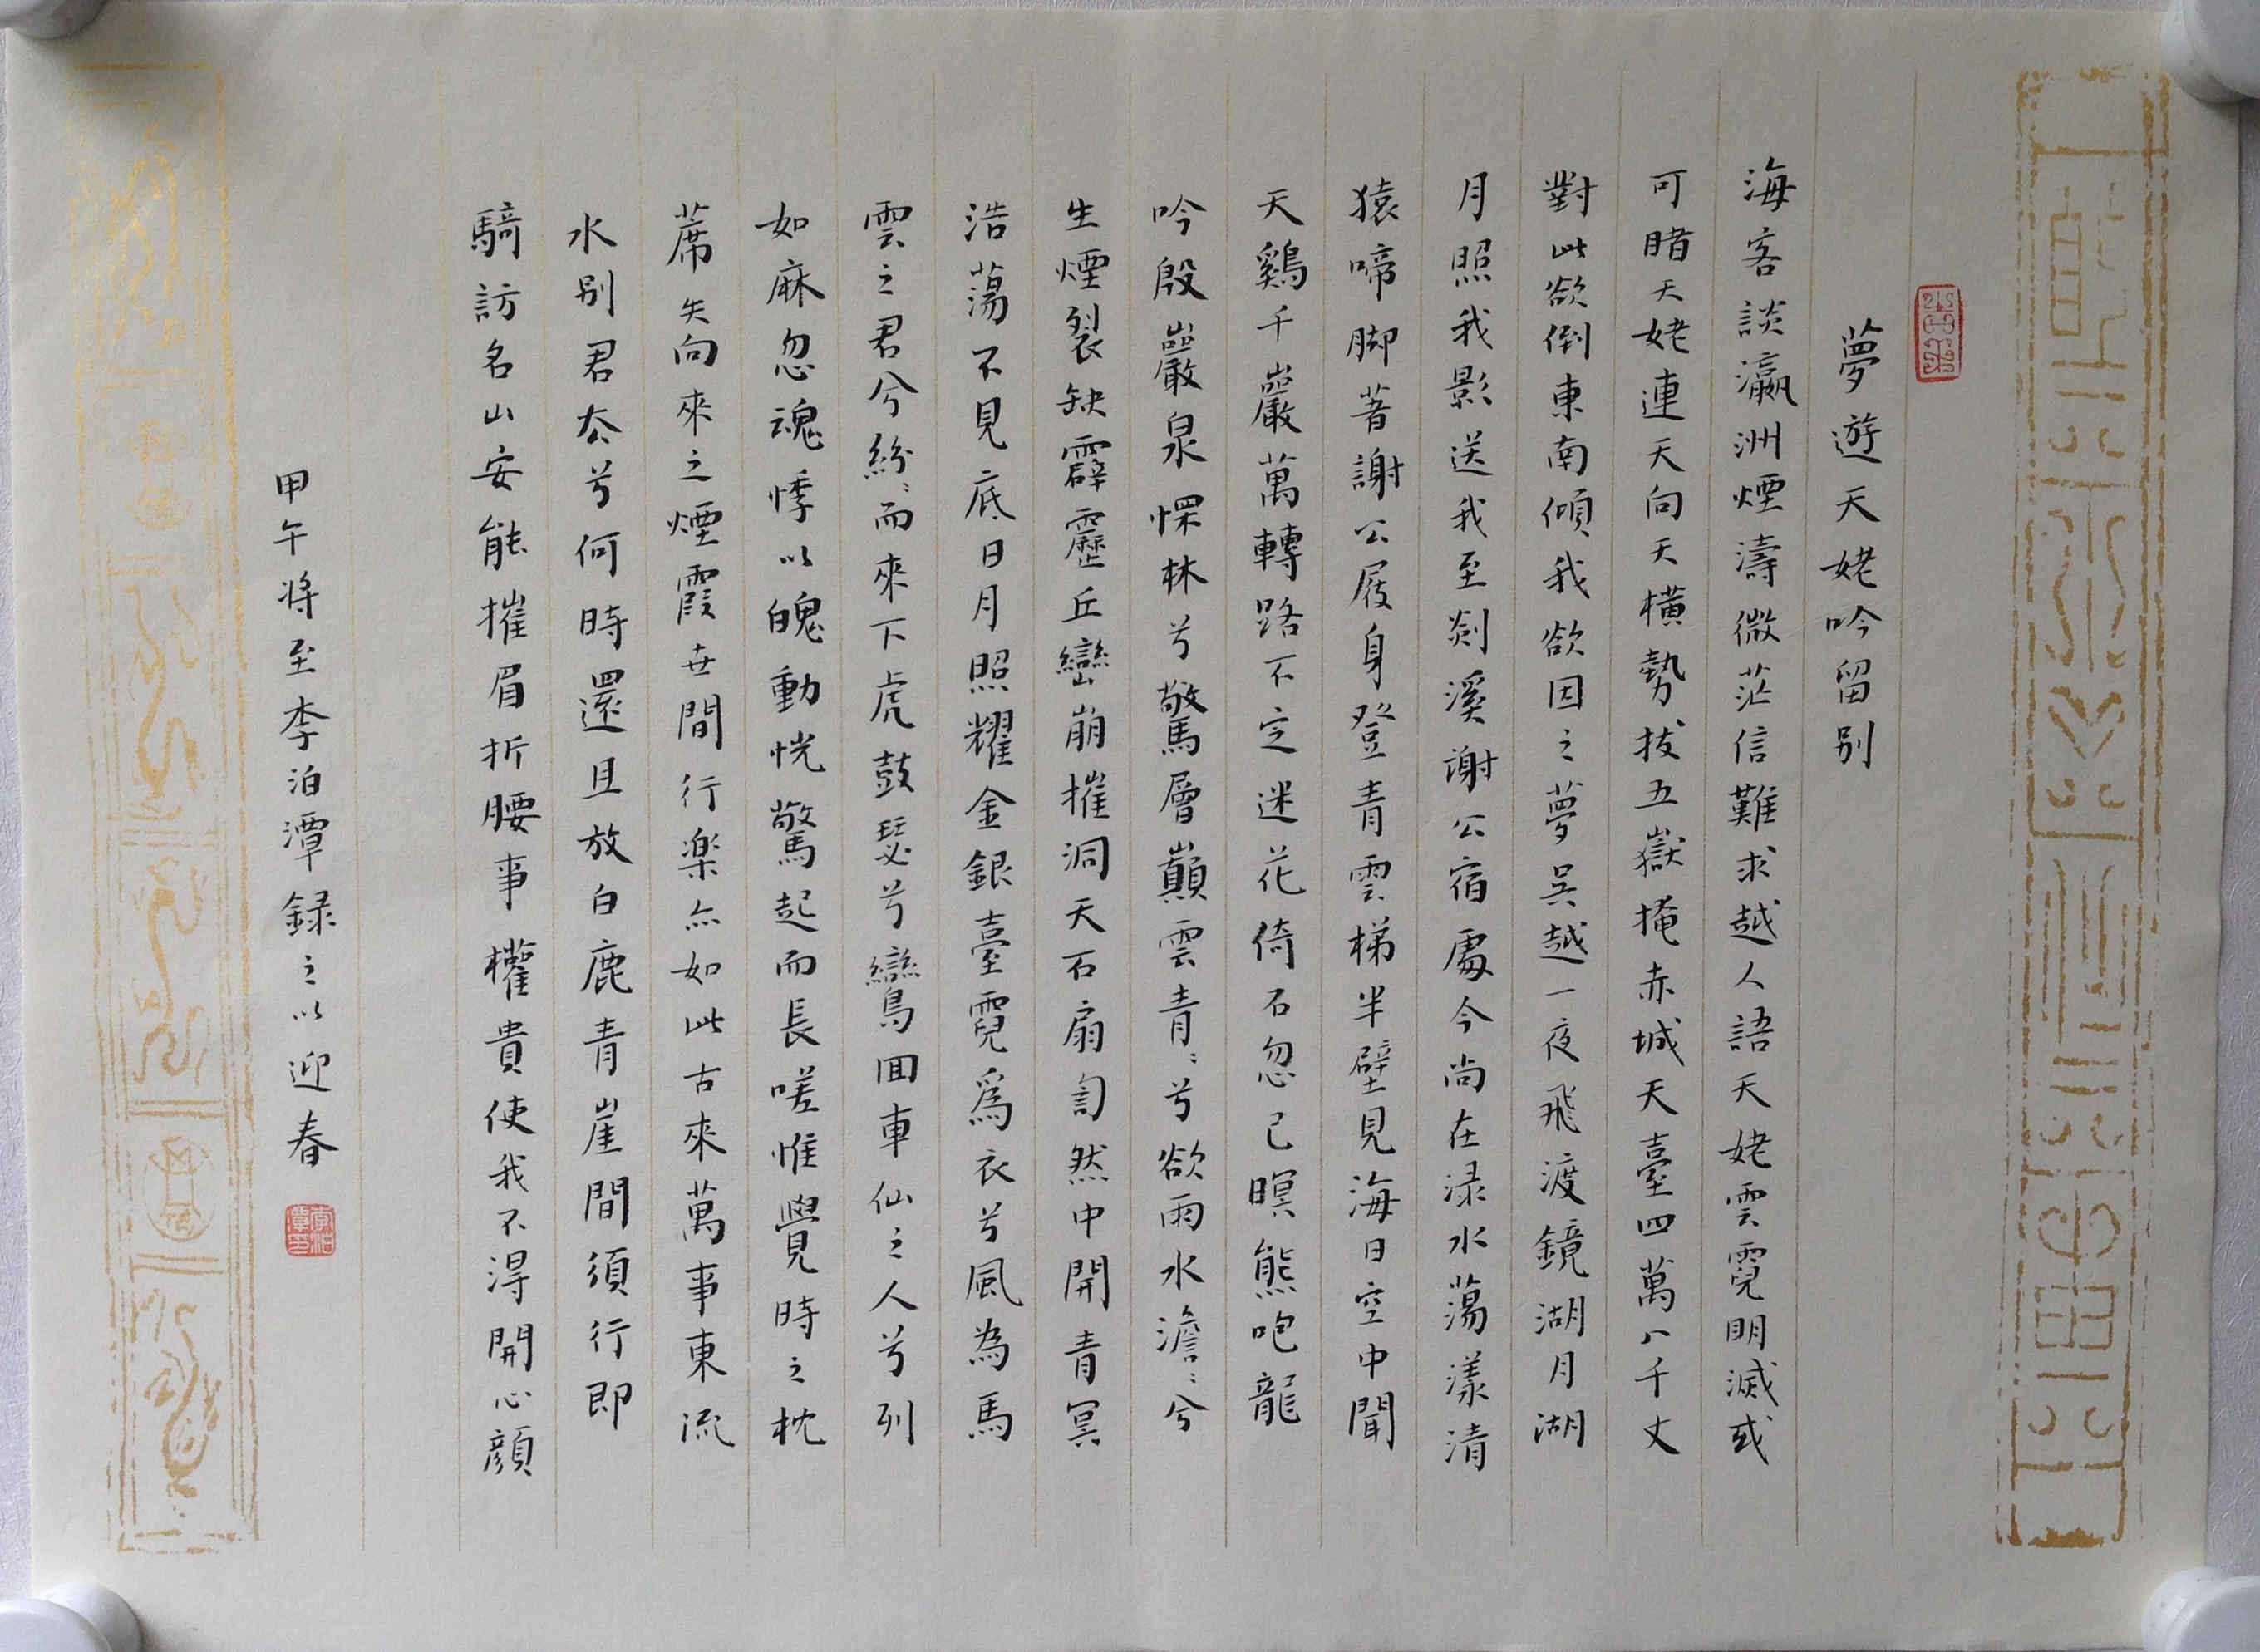 夢遊天姥吟留別
海客談瀛洲煙濤微茫信難求越人語天姥雲霓明滅或
可睹天姥連天向天橫勢拔五嶽掩赤城天臺四萬八千丈
對此欲倒東南傾我欲因之夢吳越一夜飛渡鏡湖月湖
月照我影送我至剡溪謝公宿處今尚在渌水蕩漾清
猿啼脚著謝公屐身登青雲梯半壁見海日空中聞
天鷄千巖萬轉路不定迷花倚石忽已暝熊咆龍
吟殷巖泉慄林兮驚層巔雲青〻兮欲雨水澹〻兮
生煙裂缺霹靂丘巒崩摧洞天石扇訇然中開青冥
浩蕩不見底日月照耀金銀臺霓爲衣兮風為馬
雲之君兮紛〻而來下虎鼓瑟兮鸞回車仙之人兮列
如麻忽魂悸以魄動恍驚起而長嗟惟覺時之枕
蓆失向來之煙霞世間行樂亦如此古來萬事東流
水別君去兮何時還且放白鹿青崖間須行即
騎訪名山安能摧眉折腰事權貴使我不得開心顔
甲午將至李泊潭録之以迎春
李泊潭印